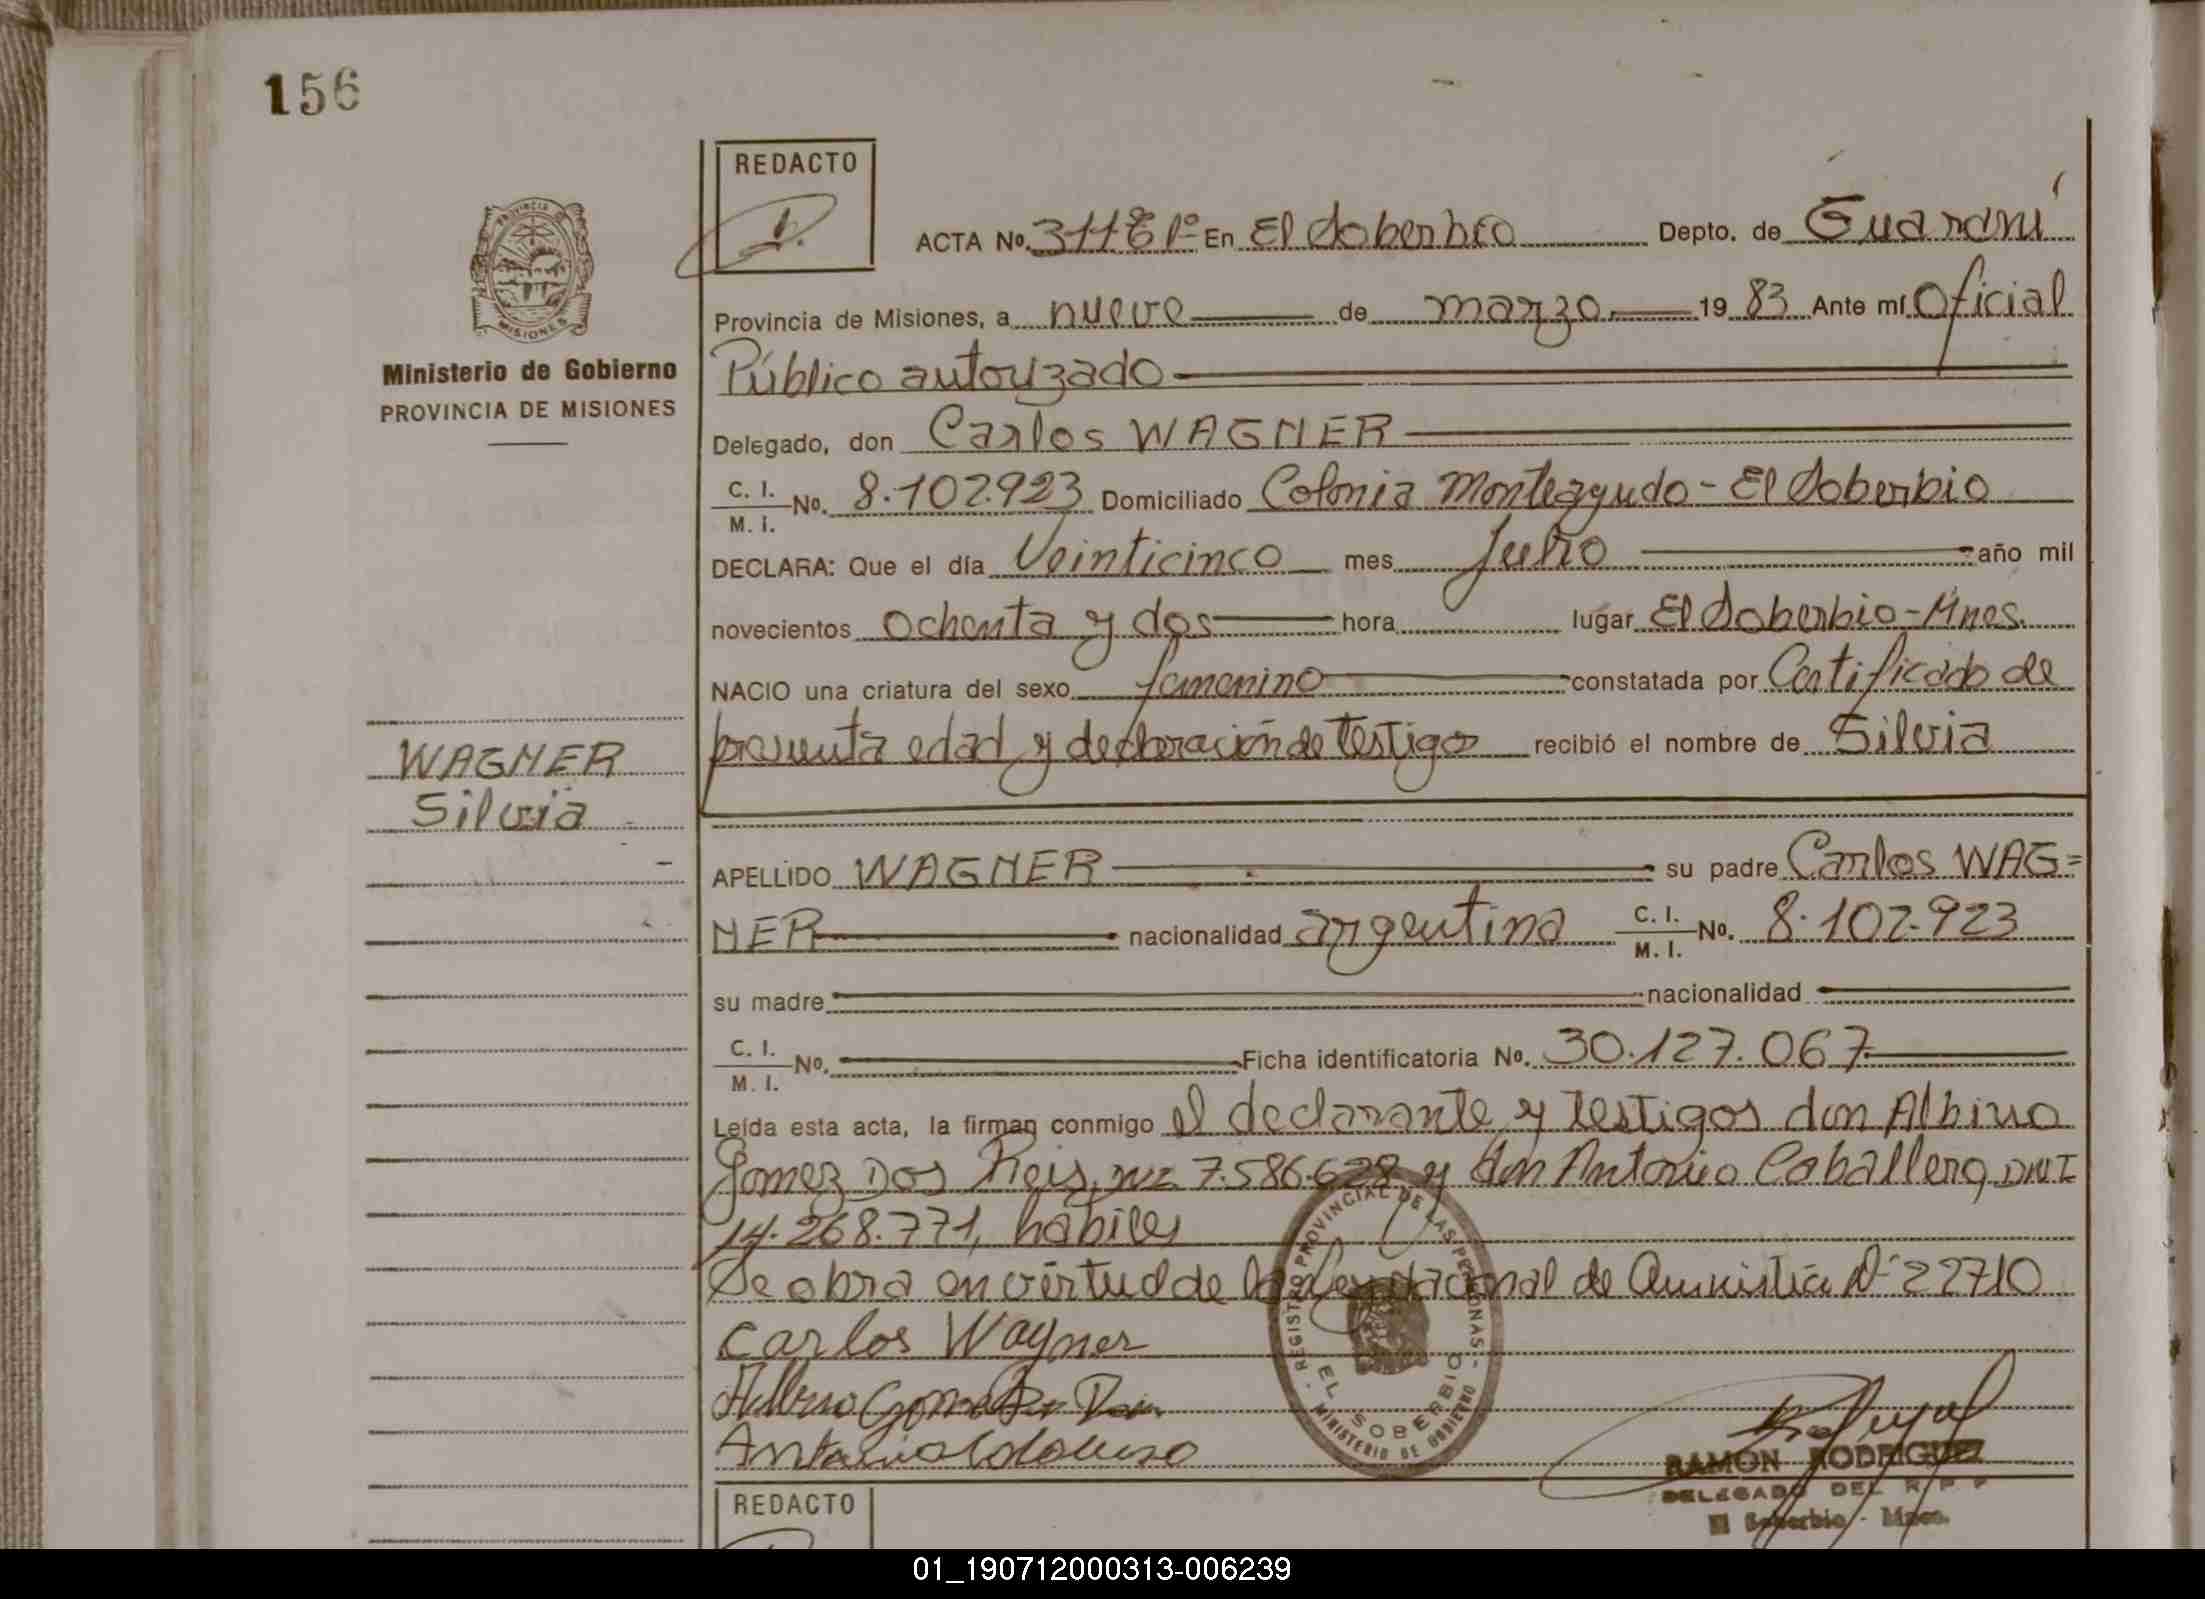 156
REDACTO
ACTA No. 311 En El Soberbio Depto. de Guaraní
Provincia de Misiones, a nueve de marzo 19 83 Ante mí Oficial
Ministerio de Gobierno
PROVINCIA DE MISIONES
Público autorizado
Delegado, don Carlos WAGNER
C. I. No. 8.102.923 Domiciliado Colonia Monteagudo - El Soberbio
M. I.
DECLARA: Que el día Veinticinco mes Julio año mil
novecientos ochenta y dos hora lugar El Soberbio - Mnes.
NACIO una criatura del sexo femenino constatada por Certificado de
presunta edad y declaración de testigos recibió el nombre de Silvia
WAGNER
Silvia
APELLIDO WAGNER su padre Carlos WAG=
NER nacionalidad argentina C. I. No. 8.102.923
M. I.
su madre nacionalidad
C. I. No. Ficha identificatoria No. 30.127.067
M. I.
Leída esta acta, la firman conmigo el declarante y testigos don Albino
Gomez Dos Reis, 7.586.628 y don Antonio Caballero, DNI
14.268.771, habiles
Se obra en virtud de la Ley Nacional de Amnistía Nº 22710
Carlos Wagner
REGISTRO PROVINCIAL DE LAS PERSONAS
EL SOBERBIO
MINISTERIO DE GOBIERNO
RAMON RODRIGUEZ
DELEGADO DEL R P P
El Soberbio - Mnes.
REDACTO
01_190712000313-006239